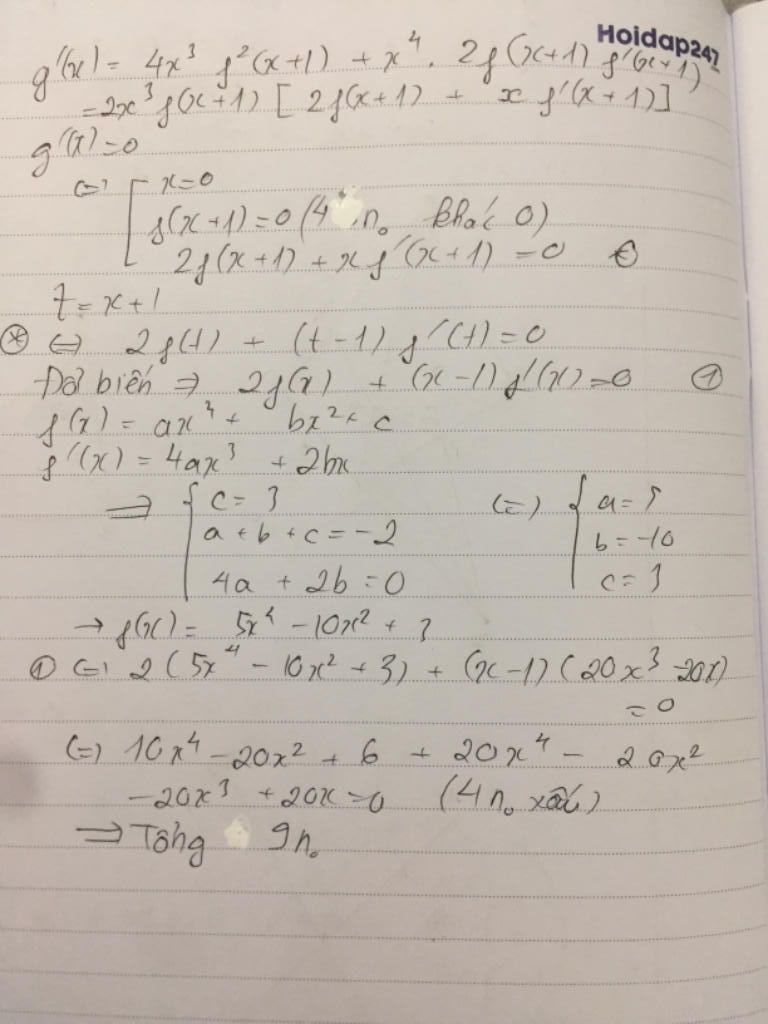 Hoidap247
g'(x) = 4x³ f²(x+1) + x⁴. 2f(x+1) f'(x+1)
= 2x³ f(x+1) [ 2f(x+1) + x f'(x+1)]
g'(x) = 0
(=) [ x = 0
f(x+1) = 0 (4 n₀ khác 0)
2f(x+1) + x f'(x+1) = 0
t = x+1
(*) ⇔ 2f(t) + (t-1) f'(t) = 0
Đổi biến ⇒ 2f(x) + (x-1) f'(x) = 0 ①
f(x) = ax⁴ + bx² + c
f'(x) = 4ax³ + 2bx
⇒ { c = 3 (=) { a = 5
a + b + c = -2 b = -10
4a + 2b = 0 c = 3
→ f(x) = 5x⁴ - 10x² + 3
① (=) 2 ( 5x⁴ - 10x² + 3) + (x-1) ( 20x³ - 20x)
= 0
(=) 10x⁴ - 20x² + 6 + 20x⁴ - 20x²
- 20x³ + 20x = 0 (4 n₀)
⇒ Tổng 9 n₀